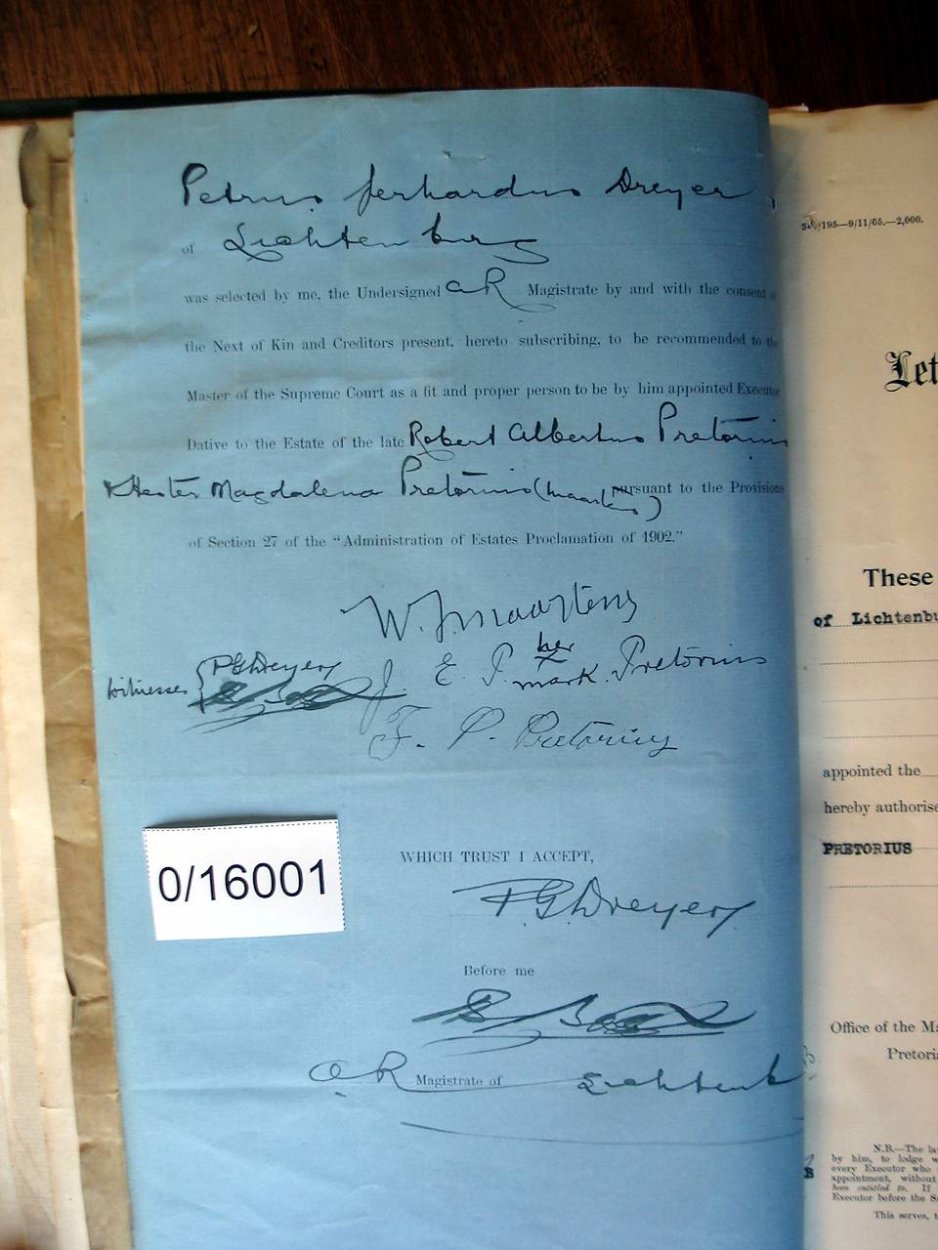 Petrus Gerhardus Dreyer
of Lichtenburg
was selected by me, the Undersigned A R Magistrate by and with the consent of
the Next of Kin and Creditors present, hereto subscribing, to be recommended to the
Master of the Supreme Court as a fit and proper person to be by him appointed Executor
Dative to the Estate of the late Robert Albertus Pretorius
& Hester Magdalena Pretorius (Maartens) pursuant to the Provisions
of Section 27 of the "Administration of Estates Proclamation of 1902."
W. J. Maartens
Witnesses { P G Dreyer J. E. P. her mark. Pretorius
F. P. Pretorius
0/16001
WHICH TRUST I ACCEPT,
P. G. Dreyer
Before me
A R Magistrate of Lichtenb
195—9/11/05.—2,000.
Let
These
of Lichtenbu
appointed the
hereby authorise
PRETORIUS
Office of the Ma
Pretoria
N.B.—The la
by him, to lodge w
every Executor who
appointment, without
been entitled to. If
Executor before the S
This serves, t